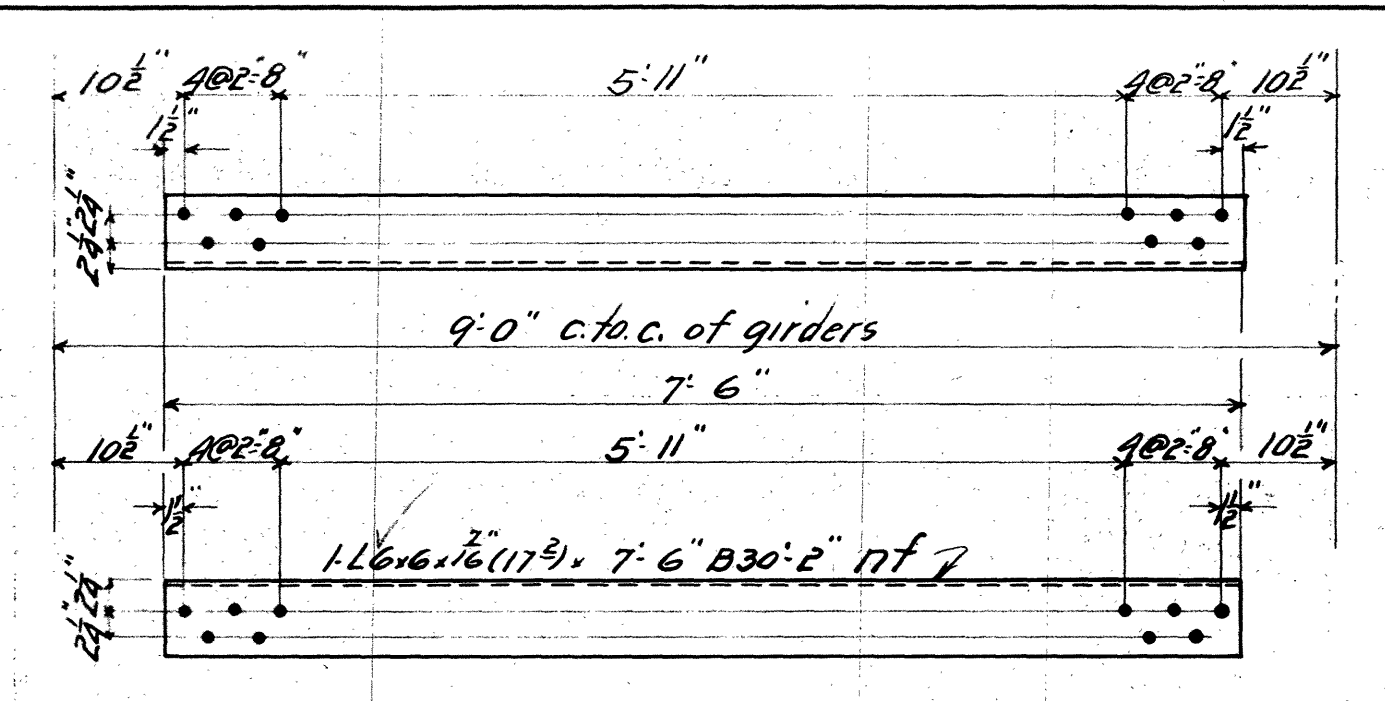 10 1/2" 4@2"=8" 5'-11" 4@2"=8" 10 1/2"
1 1/2" 1 1/2"
2 1/4" 2 1/4"
9'-0" c. to. c. of girders
7'-6"
10 1/2" 4@2"=8" 5'-11" 4@2"=8" 10 1/2"
1 1/2" 1 1/2"
1-L6x6x7/16" (17 2) x 7'-6" B30'-2" nf
2 1/4" 2 1/4"